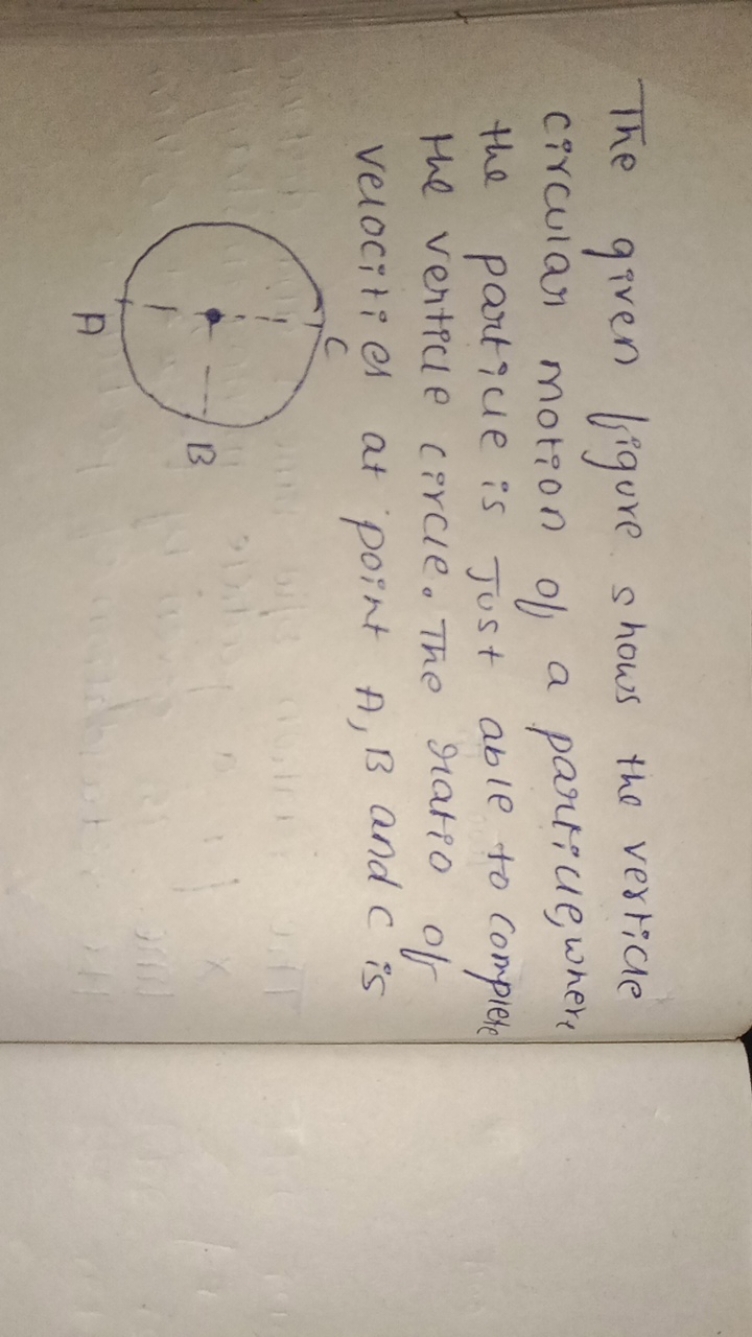 The given figure shows the verticle
circular motion of a particle, where
the particle is Just able to complete
the verticle circle. The ratio of
velocities at point A, B and C is
C
B
A